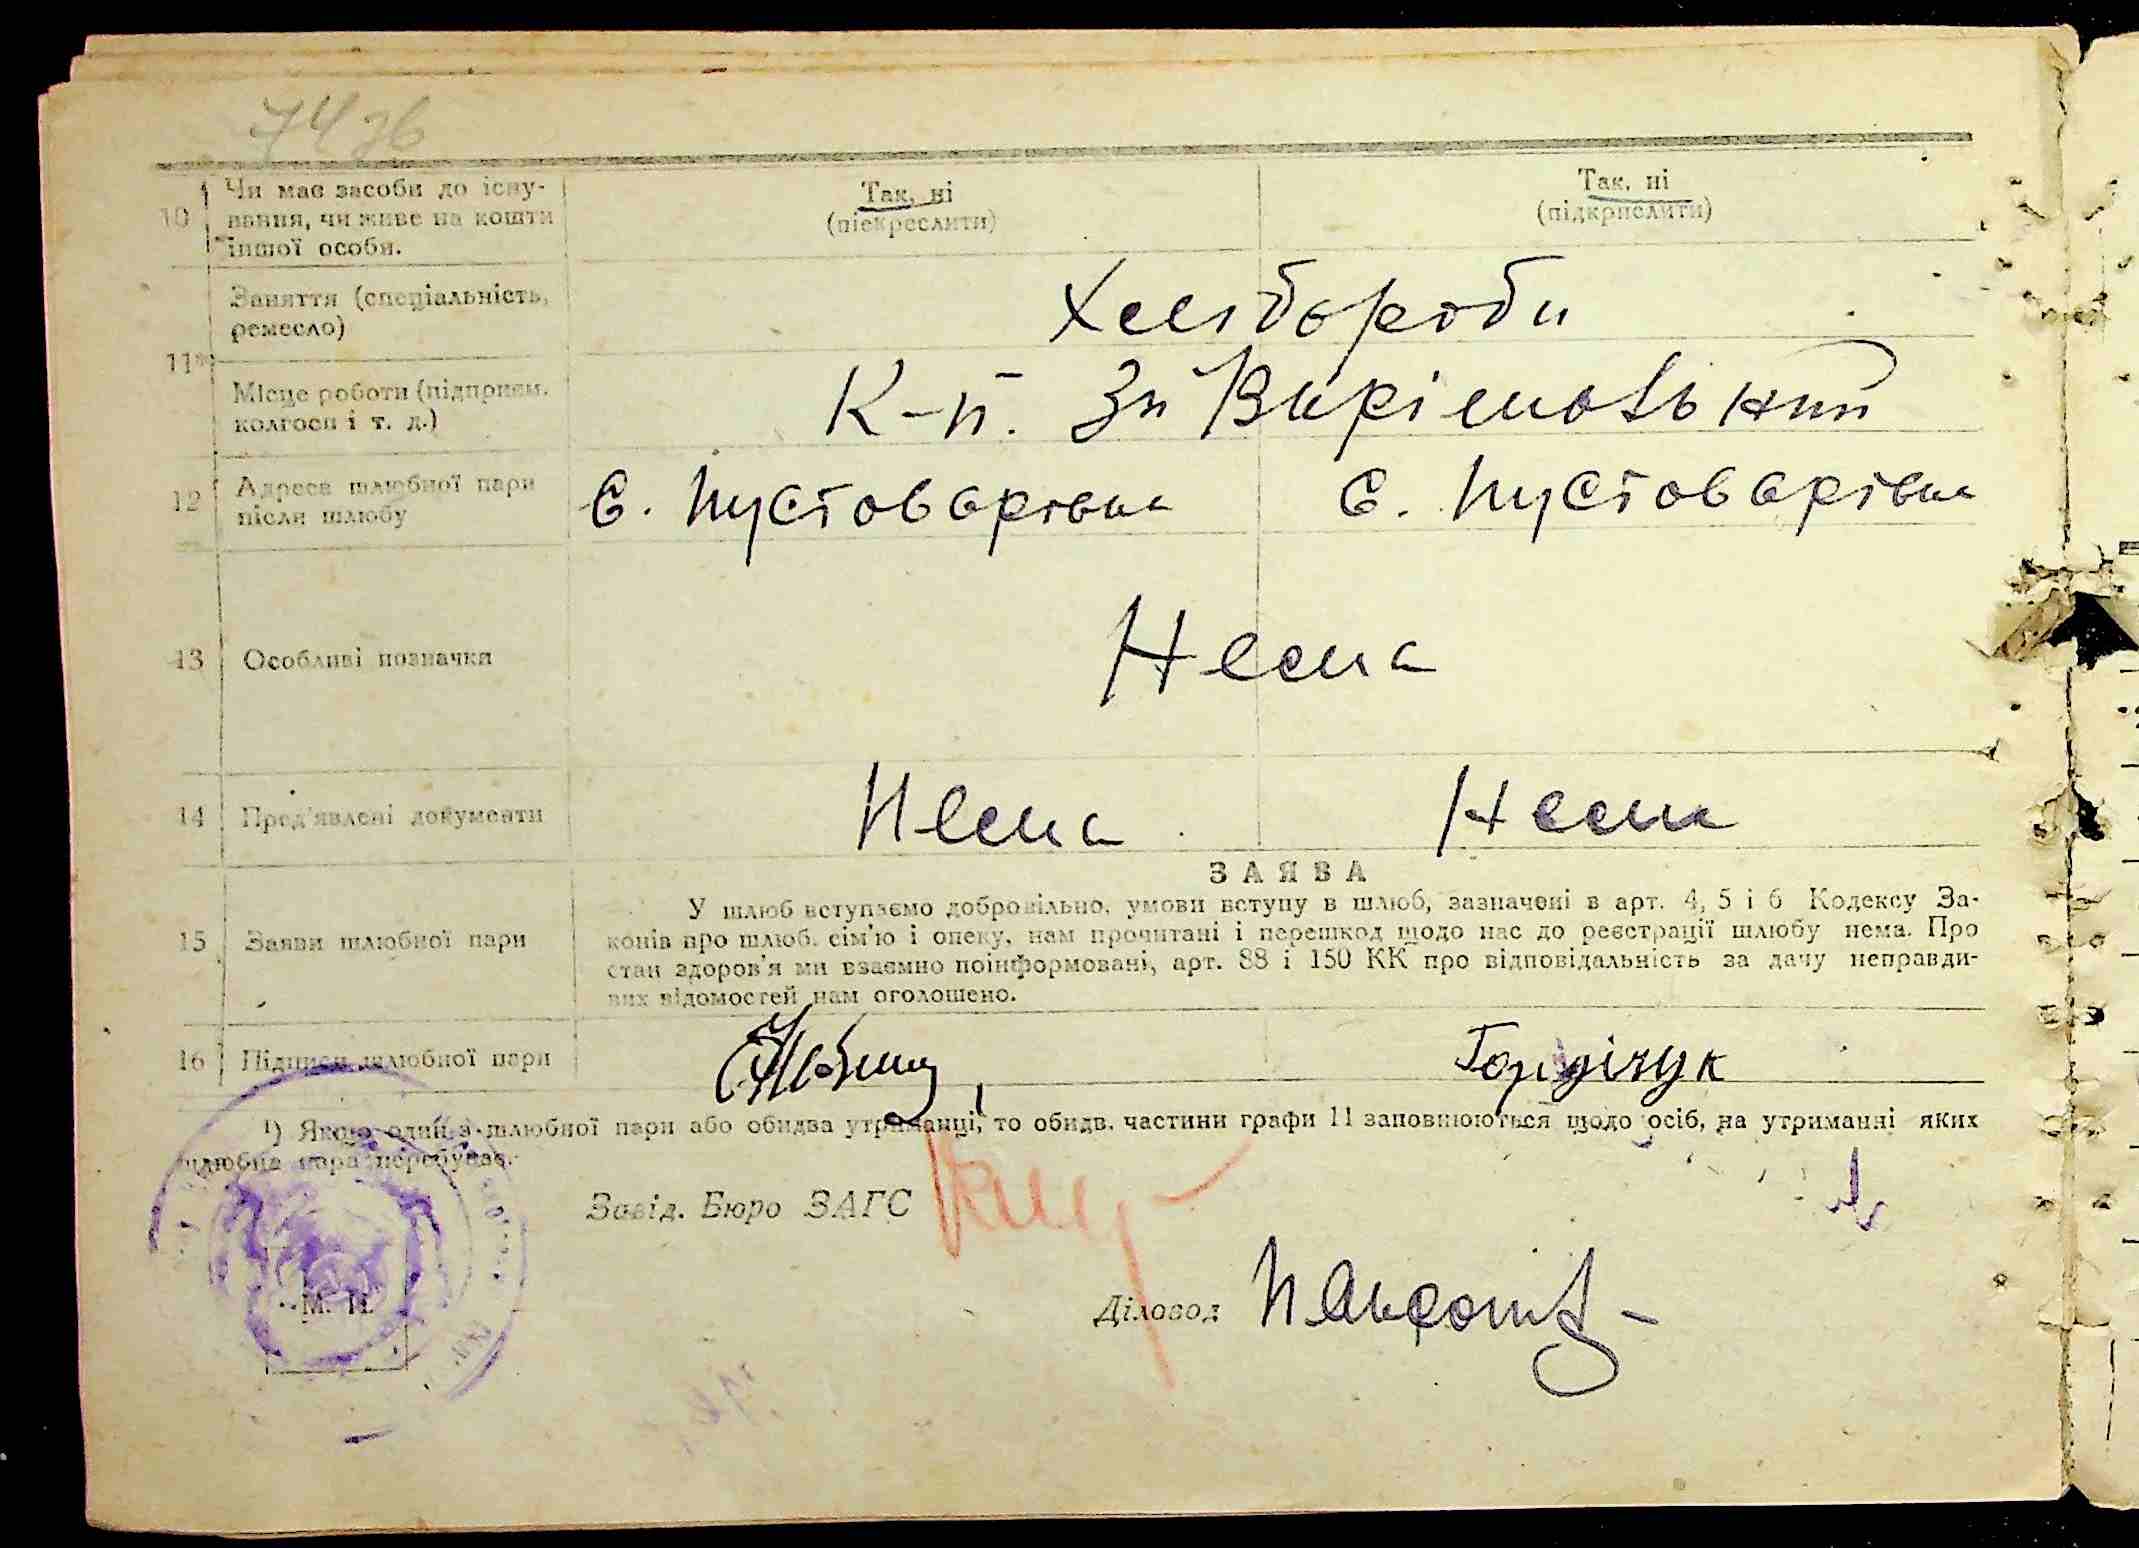 74зв
10 Чи має засоби до існу-
вання, чи живе на кошти
іншої особи.
Так, ні
(піскреслити)
Так, ні
(підкрислити)
11
Заняття (спеціальність,
ремесло)
Хлібороби
Місце роботи (підприєм.
колгосп і т. д.)
К-п. Зн
12 Адреса шлюбної пари
після шлюбу
с. Пустоварівка
с. Пустоварівка
13 Особливі позначки
Нема
14 Пред'явлені документи
Нема
Нема
ЗАЯВА
15 Заяви шлюбної пари
У шлюб вступаємо добровільно, умови вступу в шлюб, зазначені в арт. 4, 5 і 6 Кодексу За-
конів про шлюб, сім'ю і опеку, нам прочитані і перешкод щодо нас до реєстрації шлюбу нема. Про
стан здоров'я ми взаємно поінформовані, арт. 88 і 150 КК про відповідальність за дачу неправди-
вих відомостей нам оголошено.
16 Підписи шлюбної пари
Гордічук
¹) Якщо один з шлюбної пари або обидва утриманці, то обидв. частини графи 11 заповнюються щодо осіб, на утриманні яких
шлюбна пара перебуває.
Завід. Бюро ЗАГС
М. П.
Діловод